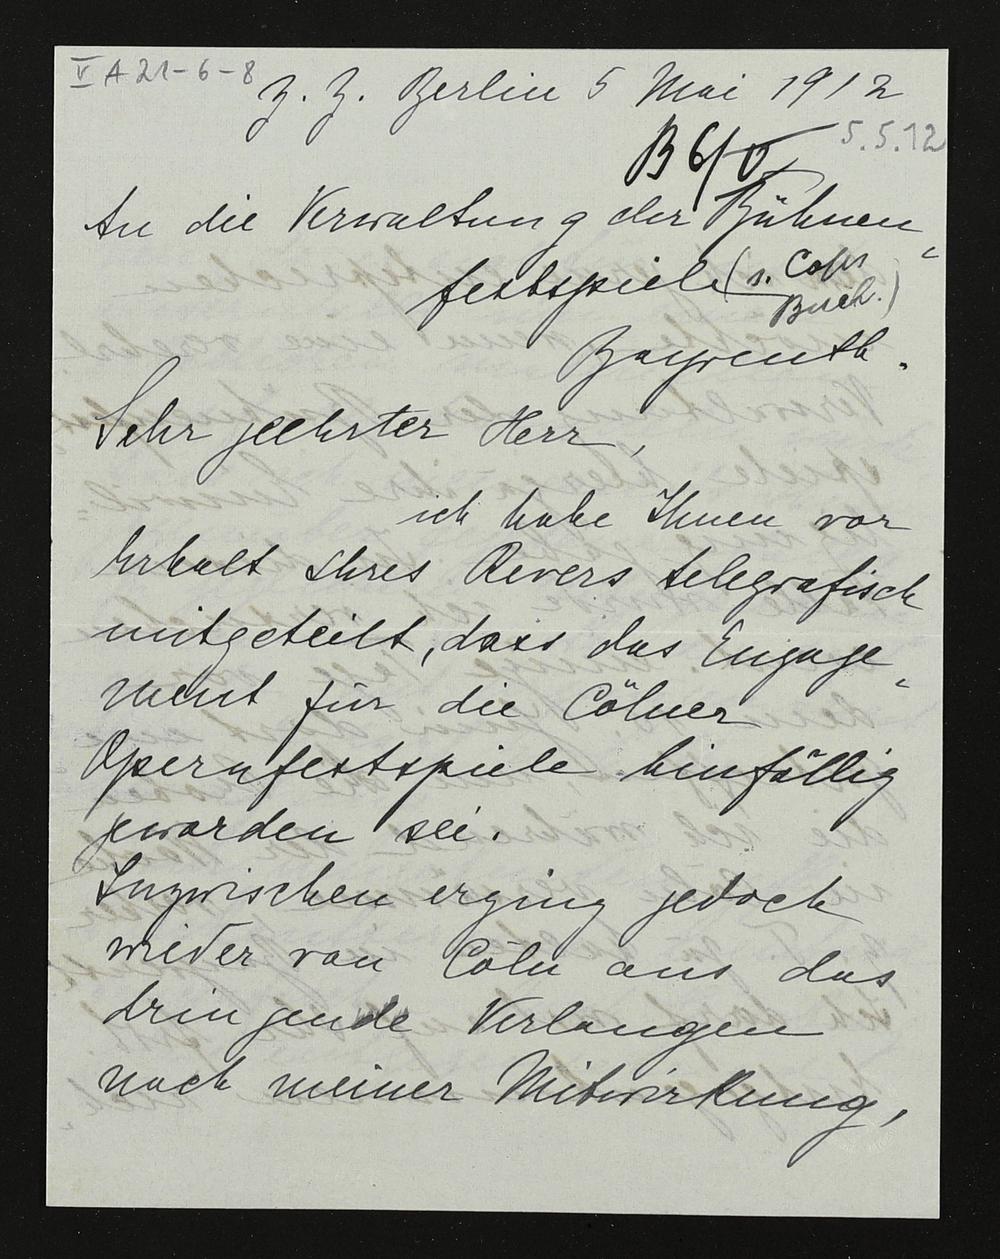 V A 21-6-8
z. Z. Berlin 5 Mai 1912
B 6/V
5.5.12
An die Verwaltung der Bühnen-
festspiele (s. Copir
Buch.)
Bayreuth.
Sehr geehrter Herr,
ich habe Ihnen vor
Erhalt Ihres Revers telegrafisch
mitgeteilt, dass das Engage-
ment für die Cölner
Opernfestspiele hinfällig
geworden sei.
Inzwischen erging jedoch
wieder von Cöln aus das
dringende Verlangen
nach meiner Mitwirkung,